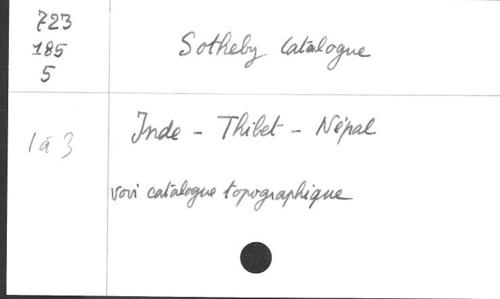 723
185
5
Sotheby Catalogue
1 à 3
Inde - Thibet - Népal
voir catalogue topographique